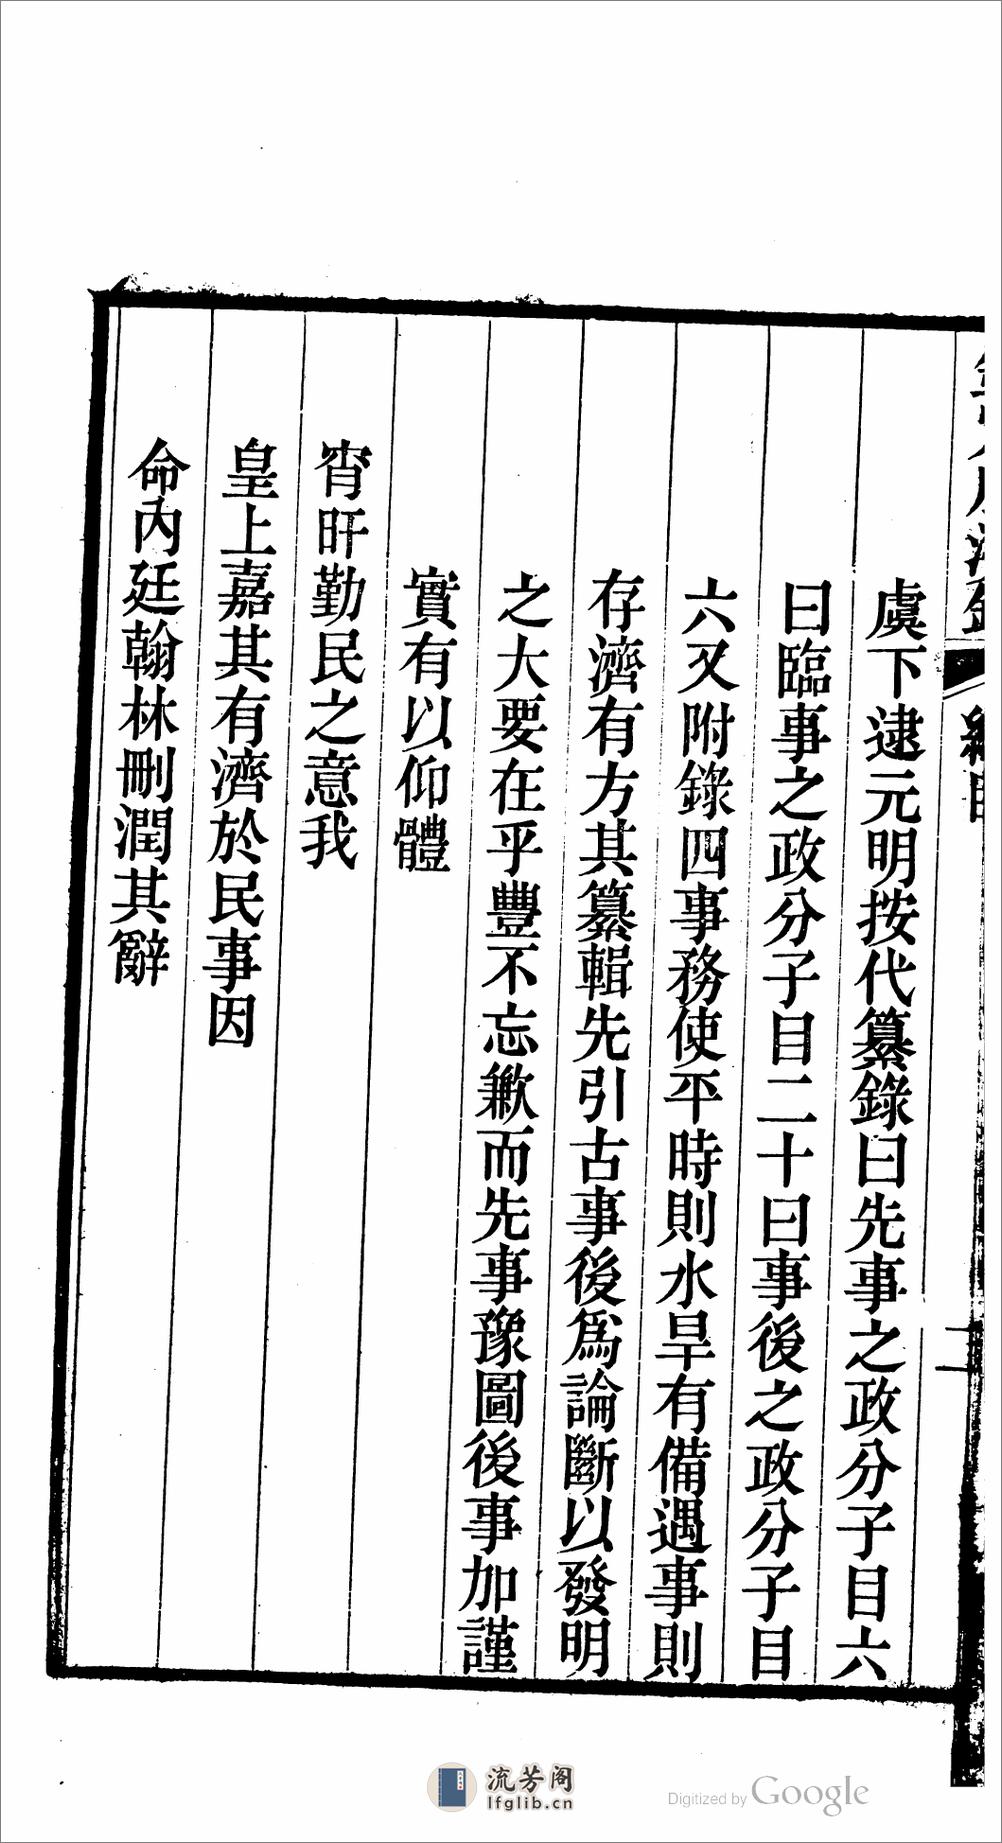 虞下逮元明按代纂錄曰先事之政分子目六
曰臨事之政分子目二十曰事後之政分子目
六又附錄四事務使平時則水旱有備遇事則
存濟有方其纂輯先引古事後爲論斷以發明
之大要在乎豐不忘歉而先事豫圖後事加謹
實有以仰體
宵旰勤民之意我
皇上嘉其有濟於民事因
命內廷翰林刪潤其辭
流芳阁
lfglib.cn
Digitized by Google